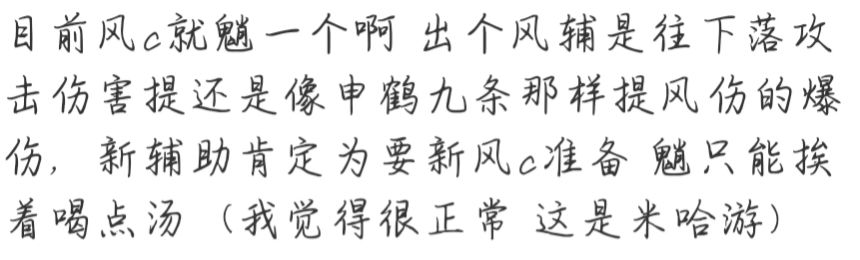 目前风c就魈一个啊 出个风辅是往下落攻
击伤害提还是像申鹤九条那样提风伤的爆
伤，新辅助肯定为要新风c准备 魈只能挨
着喝点汤（我觉得很正常 这是米哈游）